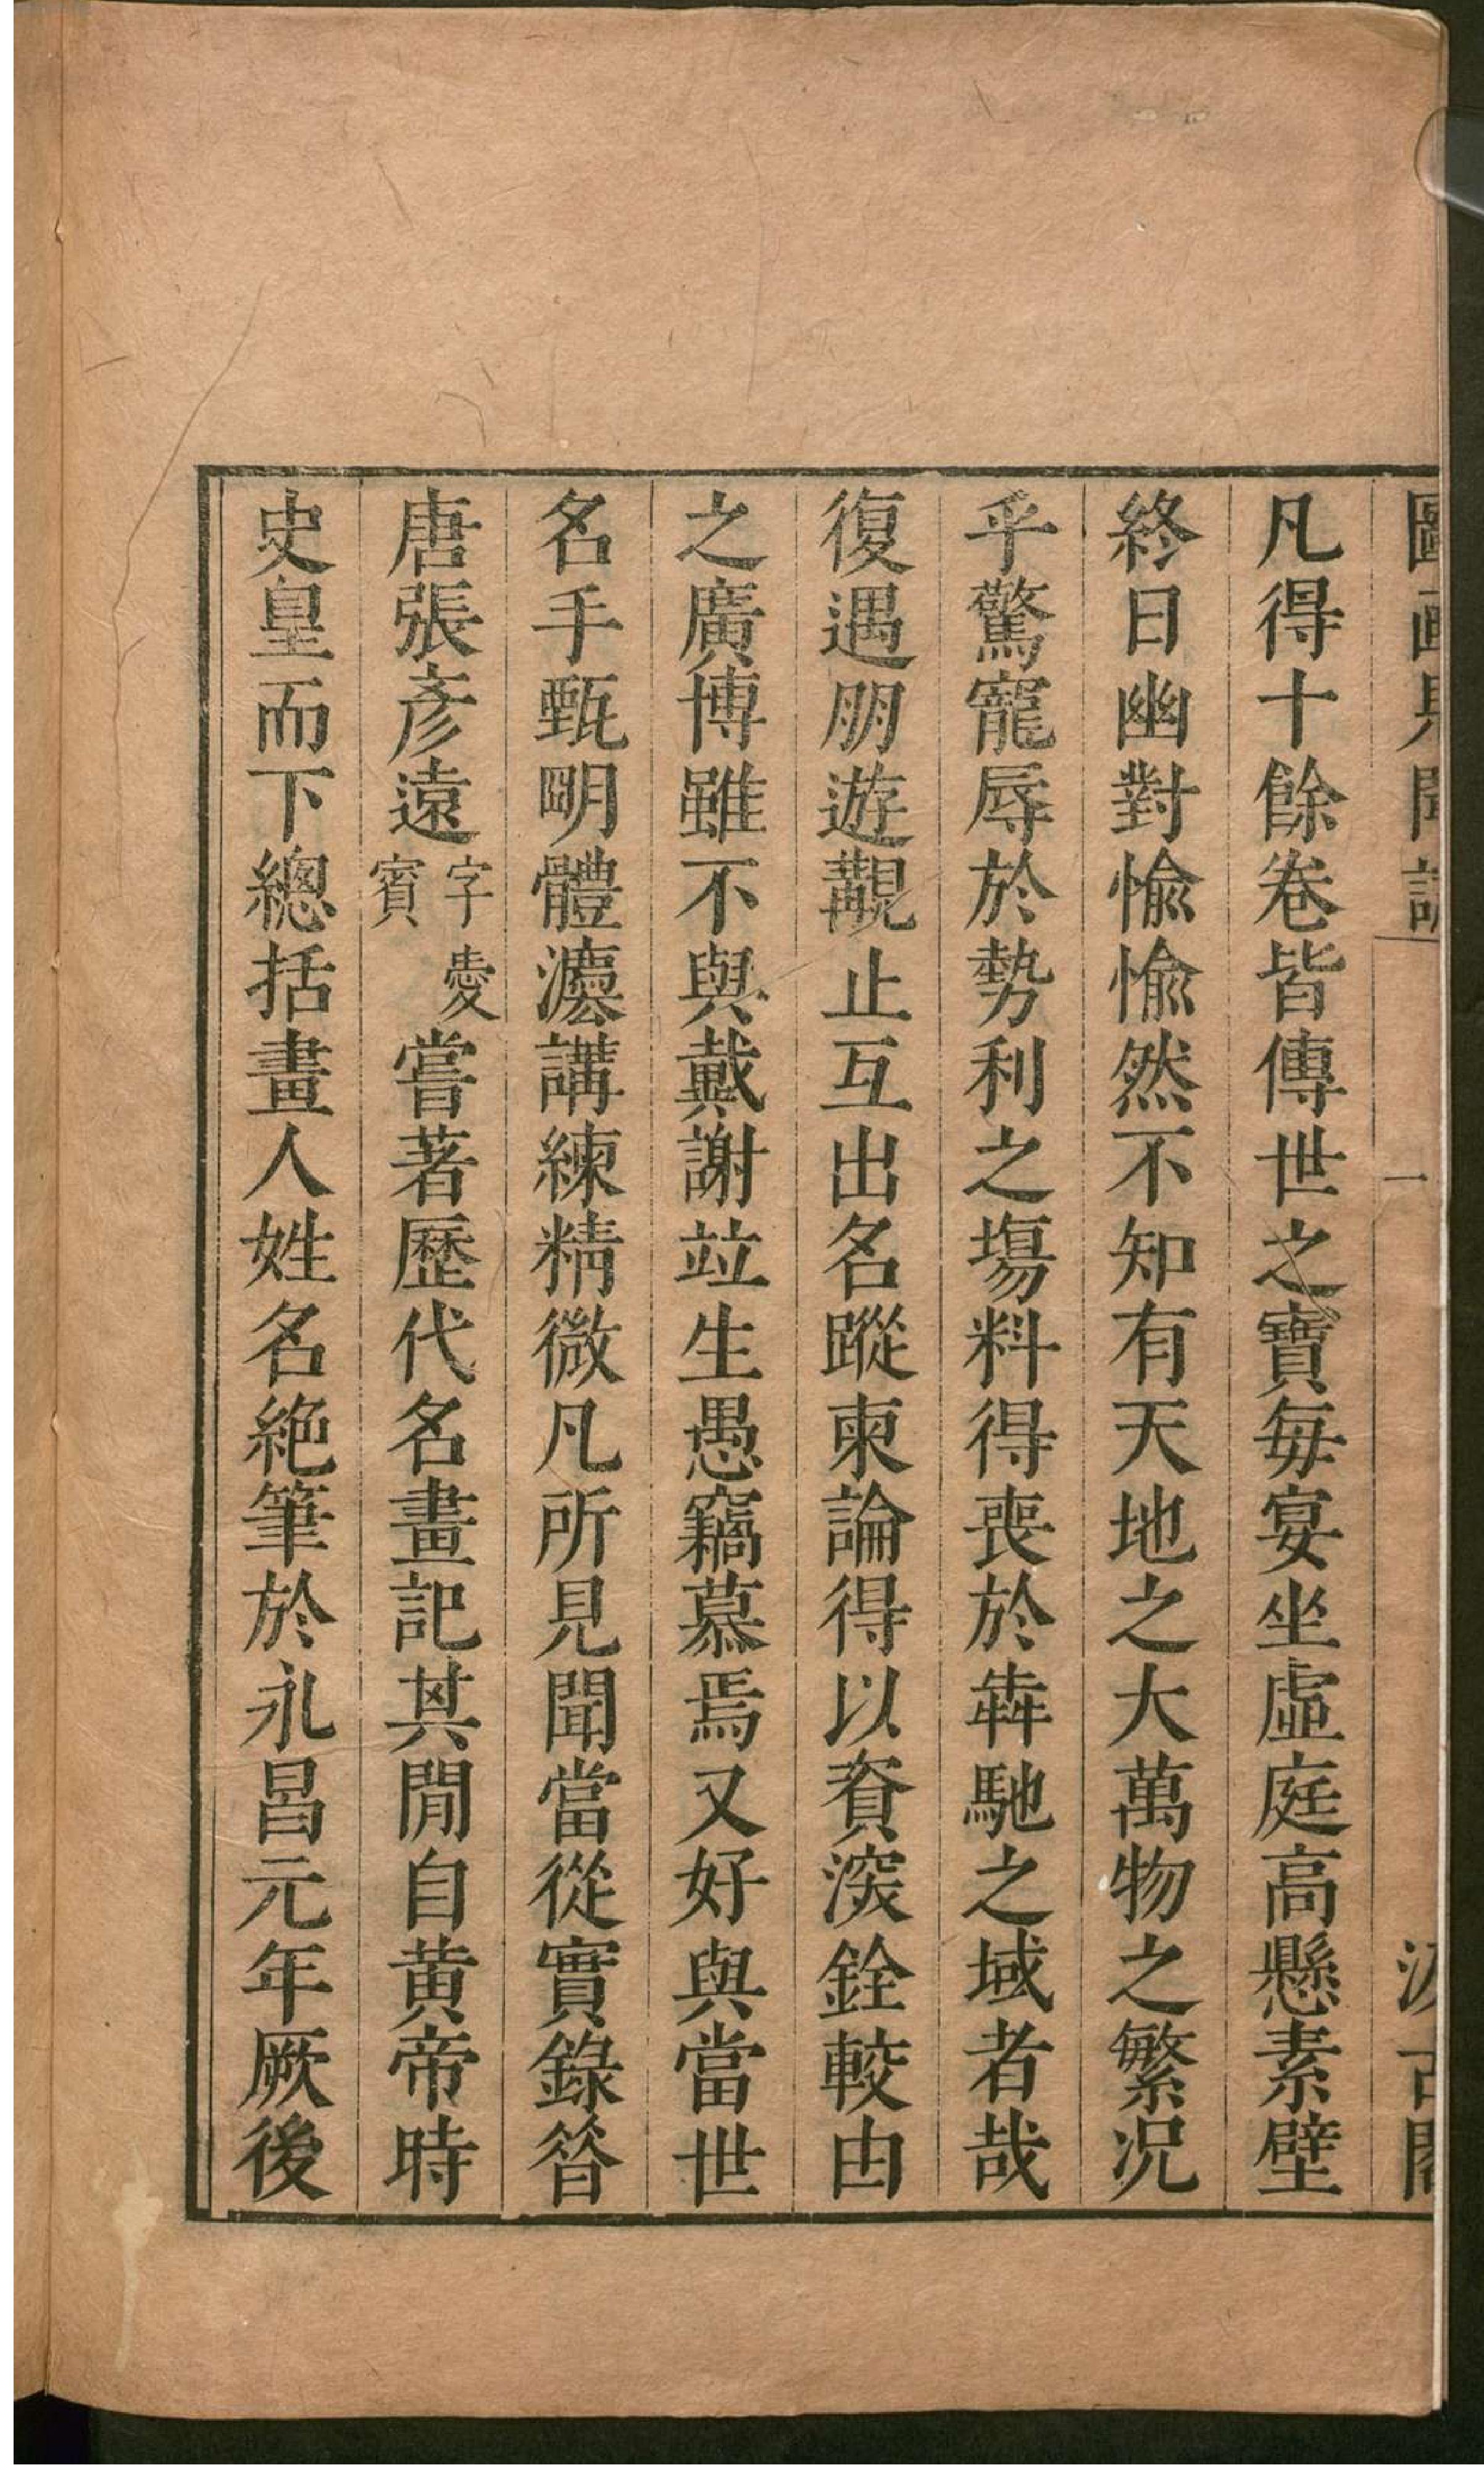 圖畫見聞誌 一 汲古閣
凡得十餘卷皆傳世之寶每宴坐虛庭高懸素壁
終日幽對愉愉然不知有天地之大萬物之繁況
乎驚寵辱於勢利之場料得喪於犇馳之域者哉
復遇朋遊覯止互出名蹤柬論得以資深銓較由
之廣博雖不與戴謝竝生愚竊慕焉又好與當世
名手甄明體灋講練精微凡所見聞當從實錄昝
唐張彥遠字愛賓嘗著歷代名畫記其閒自黃帝時
史皇而下總括畫人姓名絶筆於永昌元年厥後